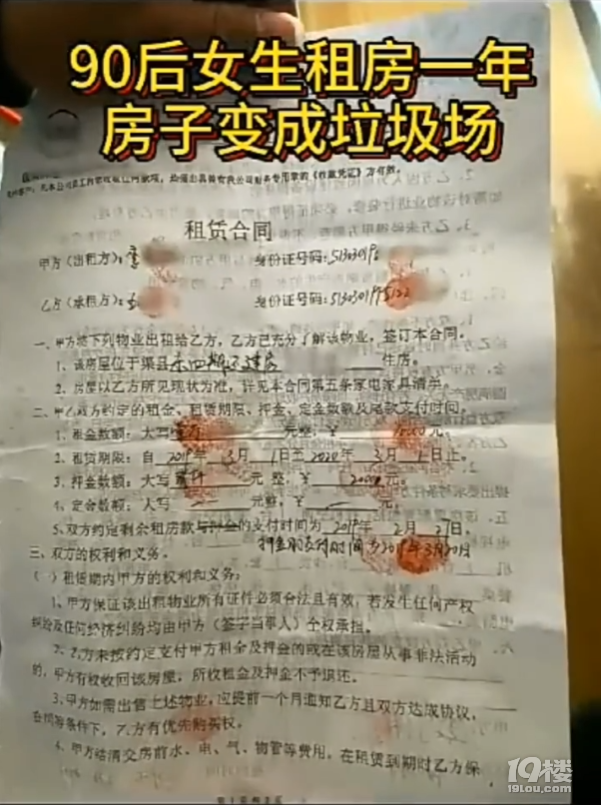 90后女生租房一年
房子变成垃圾场
租赁合同
甲方（出租方）： 身份证号码：
乙方（承租方）： 身份证号码：
一、甲方将下列物业出租给乙方，乙方已充分了解该物业，签订本合同。
1、该房屋位于渠县 住房。
2、房屋以乙方所见现状为准，详见本合同第五条家电家具清单。
二、甲乙双方约定的租金、租赁期限、押金、定金数额及尾款支付时间。
1、租金数额：大写 元整，¥ 元。
2、租赁期限：自 2019年 3月 1日至2020年 3月 1日止。
3、押金数额：大写 贰仟 元整，¥ 2000 元。
4、定金数额：大写 元整，¥ 元。
5、双方约定剩余租房款与押金的支付时间为 2019年 2月 27日。
押金的支付时间为2019年3月20日
三、双方的权利和义务。
（ ）租赁期内甲方的权利和义务：
1、甲方保证该出租物业所有证件必须合法且有效，若发生任何产权
纠纷及任何经济纠纷均由甲方（签字当事人）全权承担。
2、乙方未按约定支付甲方租金及押金的或在该房屋从事非法活动
的，甲方有权收回该房屋，所收租金及押金不予退还。
3、甲方如需出售上述物业，应提前一个月通知乙方且双方达成协议，
合同等条件下，乙方有优先购买权。
4、甲方结清交房前水、电、气、物管等费用，在租赁到期时乙方保
19楼
19lou.com